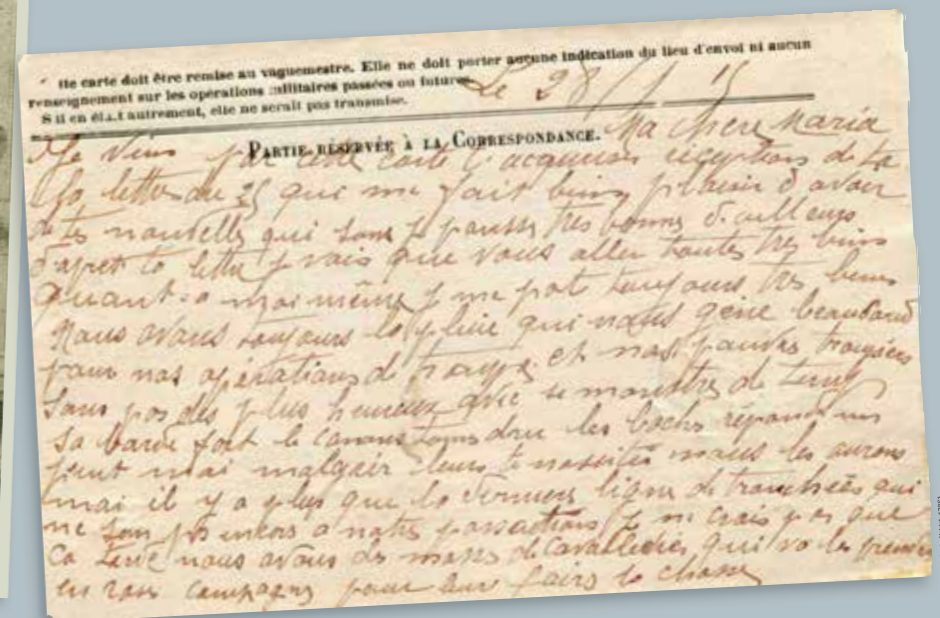 tte carte doit être remise au vaguemestre. Elle ne doit porter aucune indication du lieu d'envoi ni aucun
renseignement sur les opérations militaires passées ou futures.
S'il en était autrement, elle ne serait pas transmise.
Le 28/ 15
PARTIE RÉSERVÉE À LA CORRESPONDANCE.
Ma chere Maria
Je viens par cette carte t'acquuser réception de ta
lettre du 25 que me fait bien plaisir d avoir
de tes nouvelle qui sont je pansse tres bonnes d'ailleurs
d'apres ta lettre je vois que vous aller toutes tres bien
Quant a moi même je me porte toujours tres bien
Nous avons toujours la pluie qui nous gene beaucoup
pour nos opérations de et nos pauvres troupiers
sont pas des plus heureux avec se de temps
Sa barde fort le canons tones dru les bochs réponde un
peut mai malgair leurs nous les aurons
mai il y a plus que la derniere ligne de tranchées qui
ne son pas encore a notre je ne crois pas que
ca nous avons des masses de cavalleries qui vo les prendre
en rase campagne pour leur faire la chasse